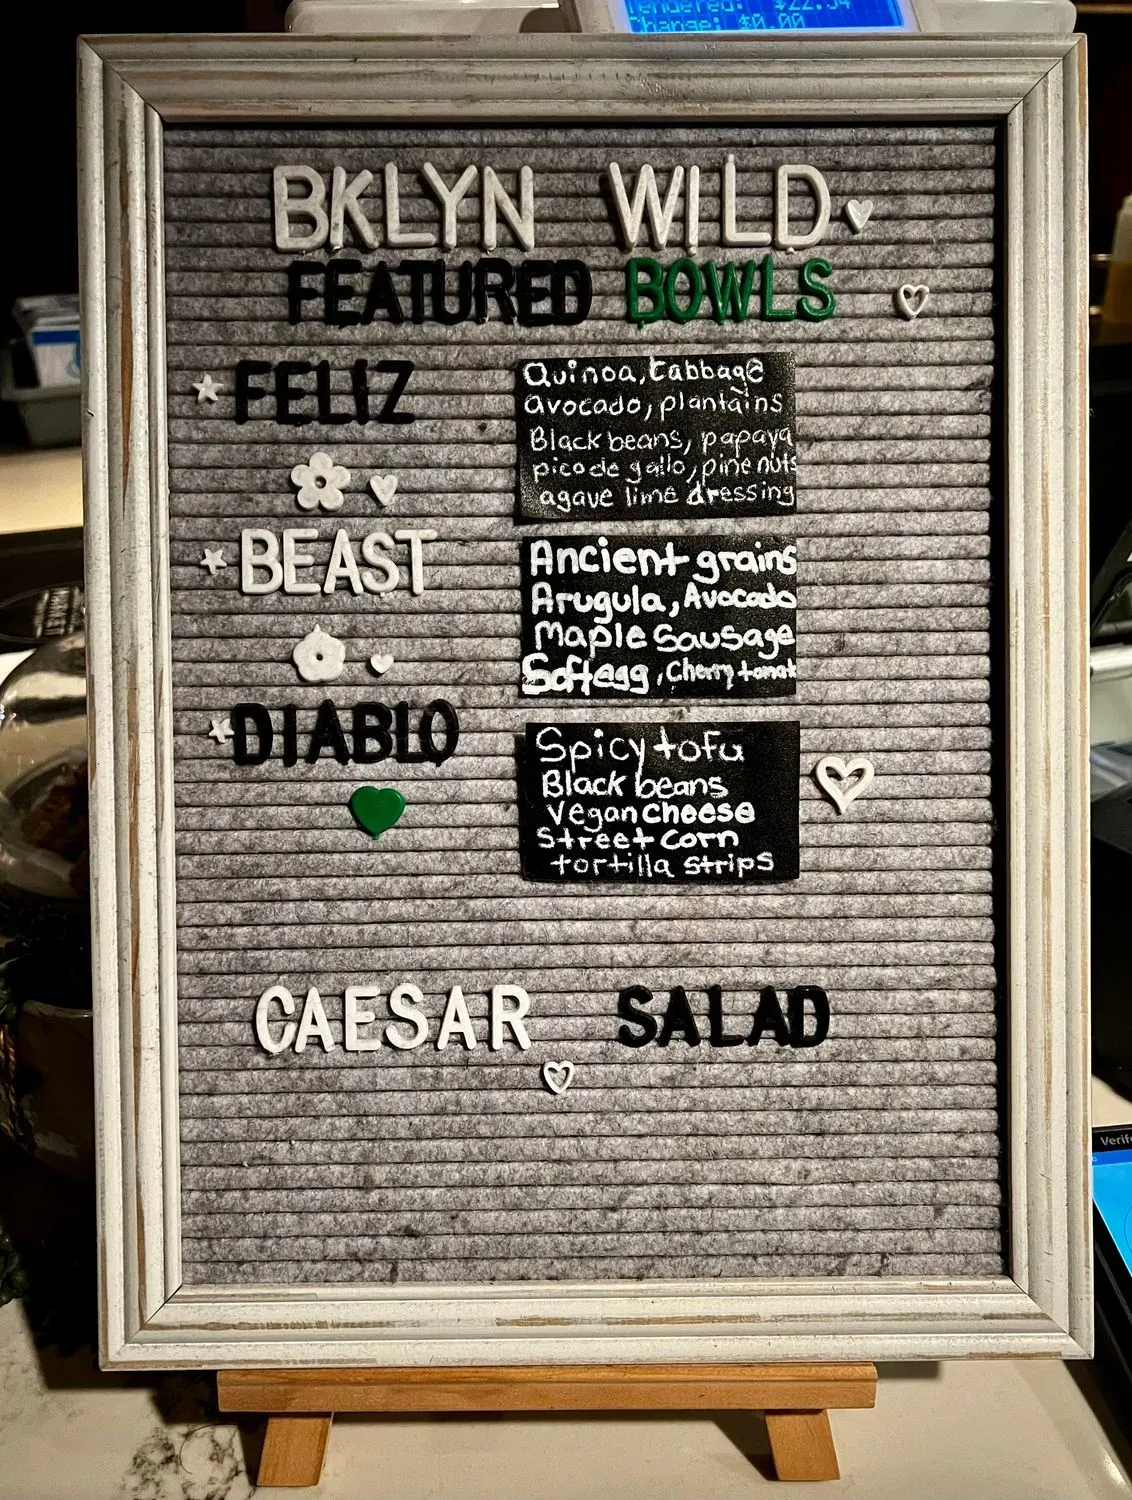 Tendered: $22.54
Change: $0.00
BKLYN WILD
FEATURED BOWLS
FELIZ
Quinoa, Cabbage
avocado, plantains
Black beans, papaya
pico de gallo, pine nuts
agave lime dressing
BEAST
Ancient grains
Arugula, Avocado
Maple Sausage
Soft egg, Cherry tomat
DIABLO
Spicy tofu
Black beans
Vegan Cheese
Street Corn
tortilla strips
CAESAR SALAD